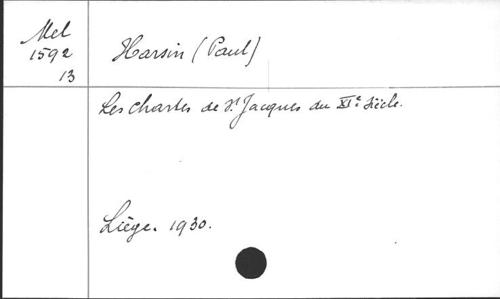 Mel
1592
13
Harsin (Paul)
Les Chartes de St Jacques du XIe siècle.
Liège. 1930.